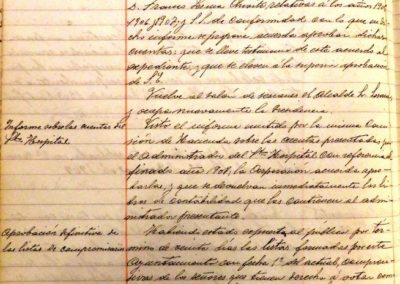 D. Francisco Chivite, relativas a los años 190
1906, 1907 y S.S. de conformidad con lo que en di
cho informe se propone acuerda aprobar dichas
cuentas: que se lleve testimonio de este acuerdo al
expediente, y que se eleven a la superior aprobación
de S.E.
Vuelve al salón de sesiones el Alcalde Sr.
y ocupa nuevamente la Presidencia.
Informe sobre las cuentas del
Sto. Hospital.
Visto el informe emitido por la misma Comi
sión de Hacienda sobre las cuentas presentadas por
el Administrador del Sto. Hospital con referencia al
finado año 1908, la Corporación acuerda apro
barlas, y que se devuelvan inmediatamente los li
bros de contabilidad que las contienen al admi
nistrador presentante.
Aprobación definitiva de
las listas de compromisarios
Habiendo estado expuestas al público por tér
mino de veinte días las listas formadas por este
Ayuntamiento con fecha 1º del actual, compren
sivas de los señores que tienen derecho a votar com